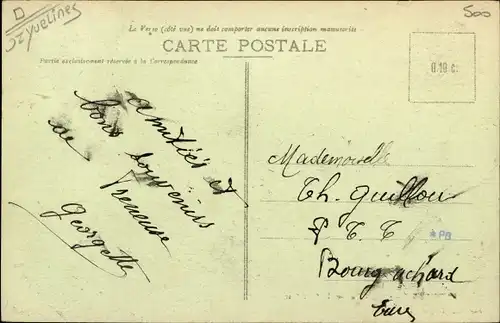 D
Yvelines
500
Le Verso (côté vue) ne doit comporter aucune inscription manuscrite
CARTE POSTALE
Partie exclusivement réservée à la Correspondance
0.10 c.
amitiés et
bons souvenirs
de Freneuse
Georgette
Mademoiselle
Th. Guillou
P T T
Bourg achard
Eure